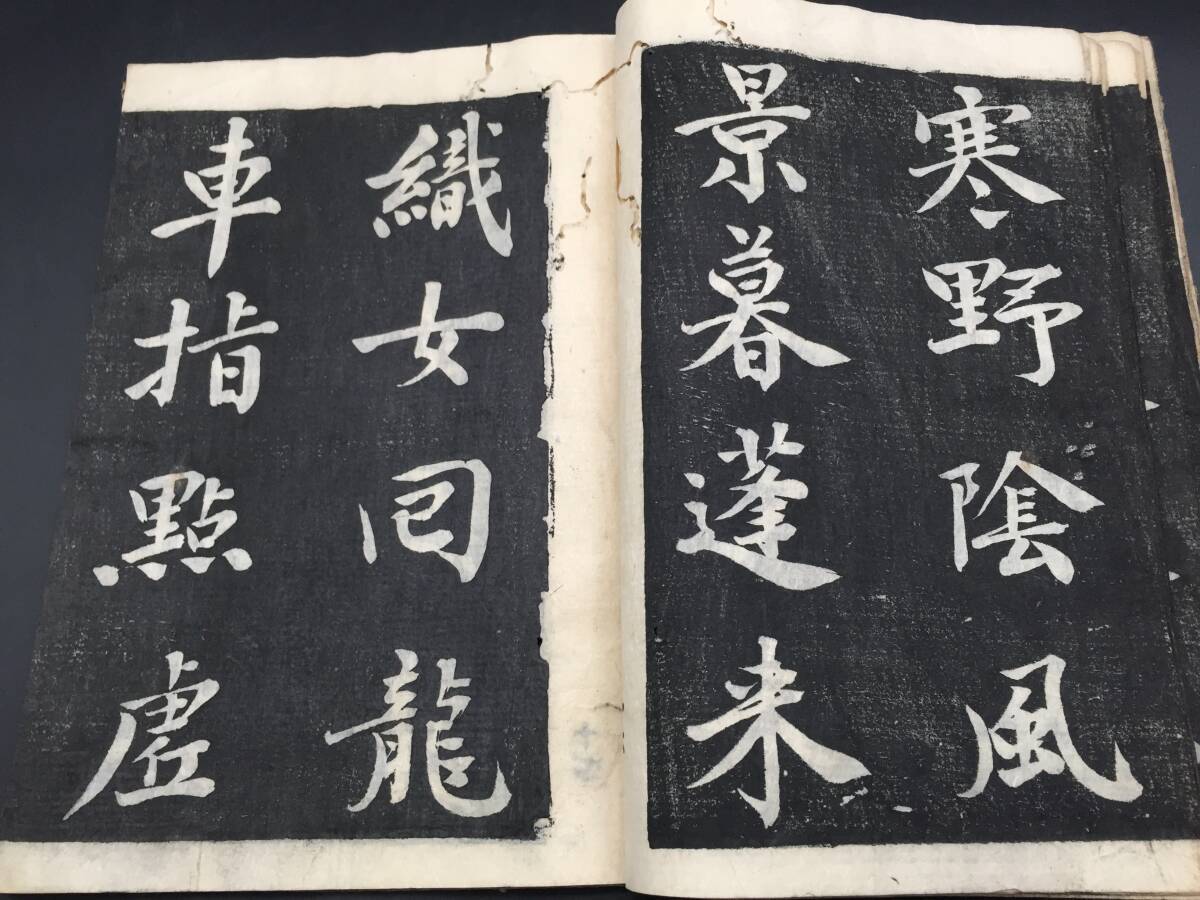 寒野陰風
景暮蓬来
織女回龍
車指點虛